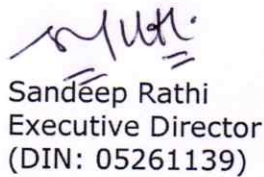 Sandeep Rathi
Executive Director
(DIN: 05261139)